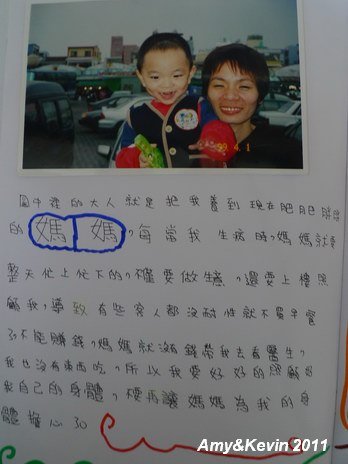 99.4.1
圖中裡的大人就是把我養到現在肥肥胖胖
的媽媽,每當我生病時,媽媽就要
整天忙上忙下的,不僅要做生意,還要上樓照
顧我,導致有些客人都沒耐性就不買早餐
了不能賺錢,媽媽就沒有錢帶我去看醫生,
我也沒有東西吃,所以我要好好的照顧自
我自己的身體,不要再讓媽媽為我的身
體擔心了。
Amy&Kevin 2011